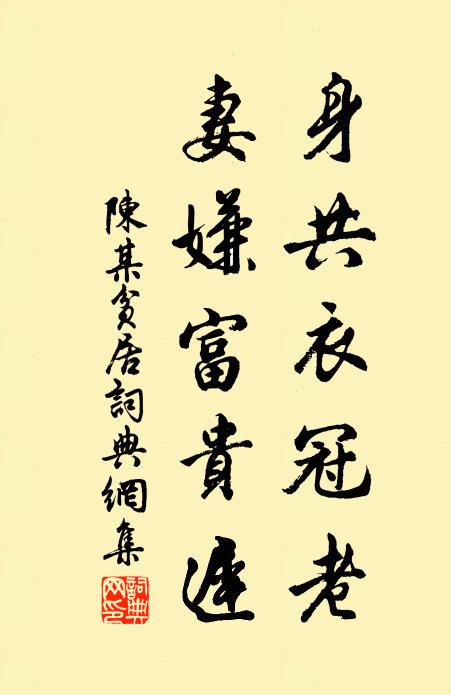 身共衣冠老
妻嫌富貴遲
陳某貧居詞典網集
詞典网印